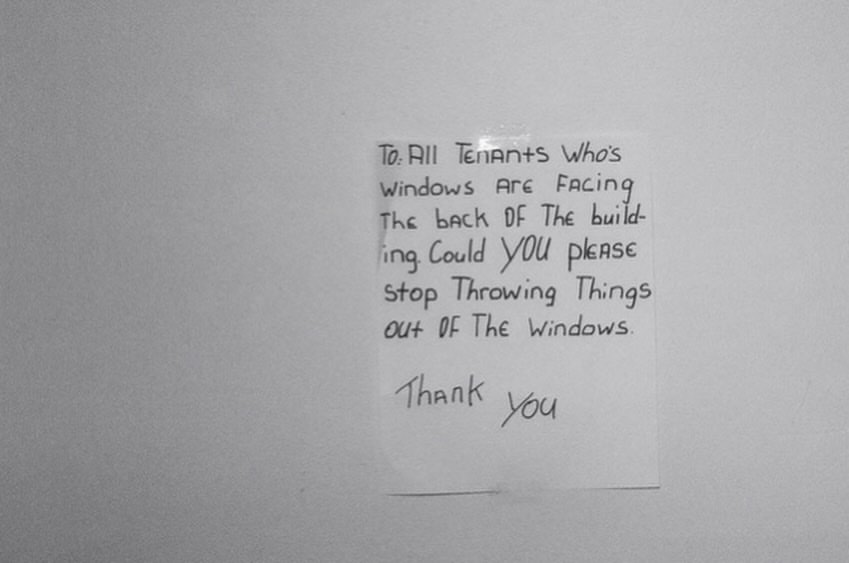 To: All Tenants Who's
windows Are Facing
The back OF The build-
ing. Could YOU please
stop Throwing Things
out OF The windows.
Thank You